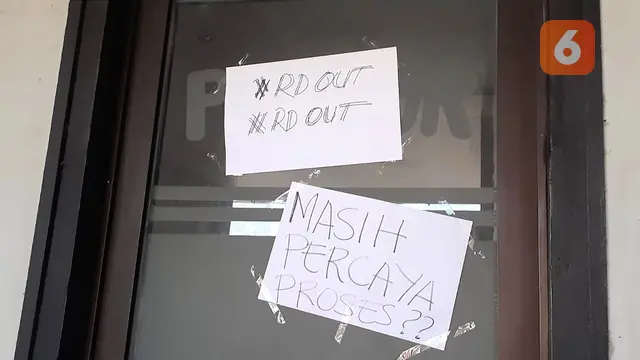 6
RD OUT
RD OUT
MASIH
PERCAYA
PROSES??